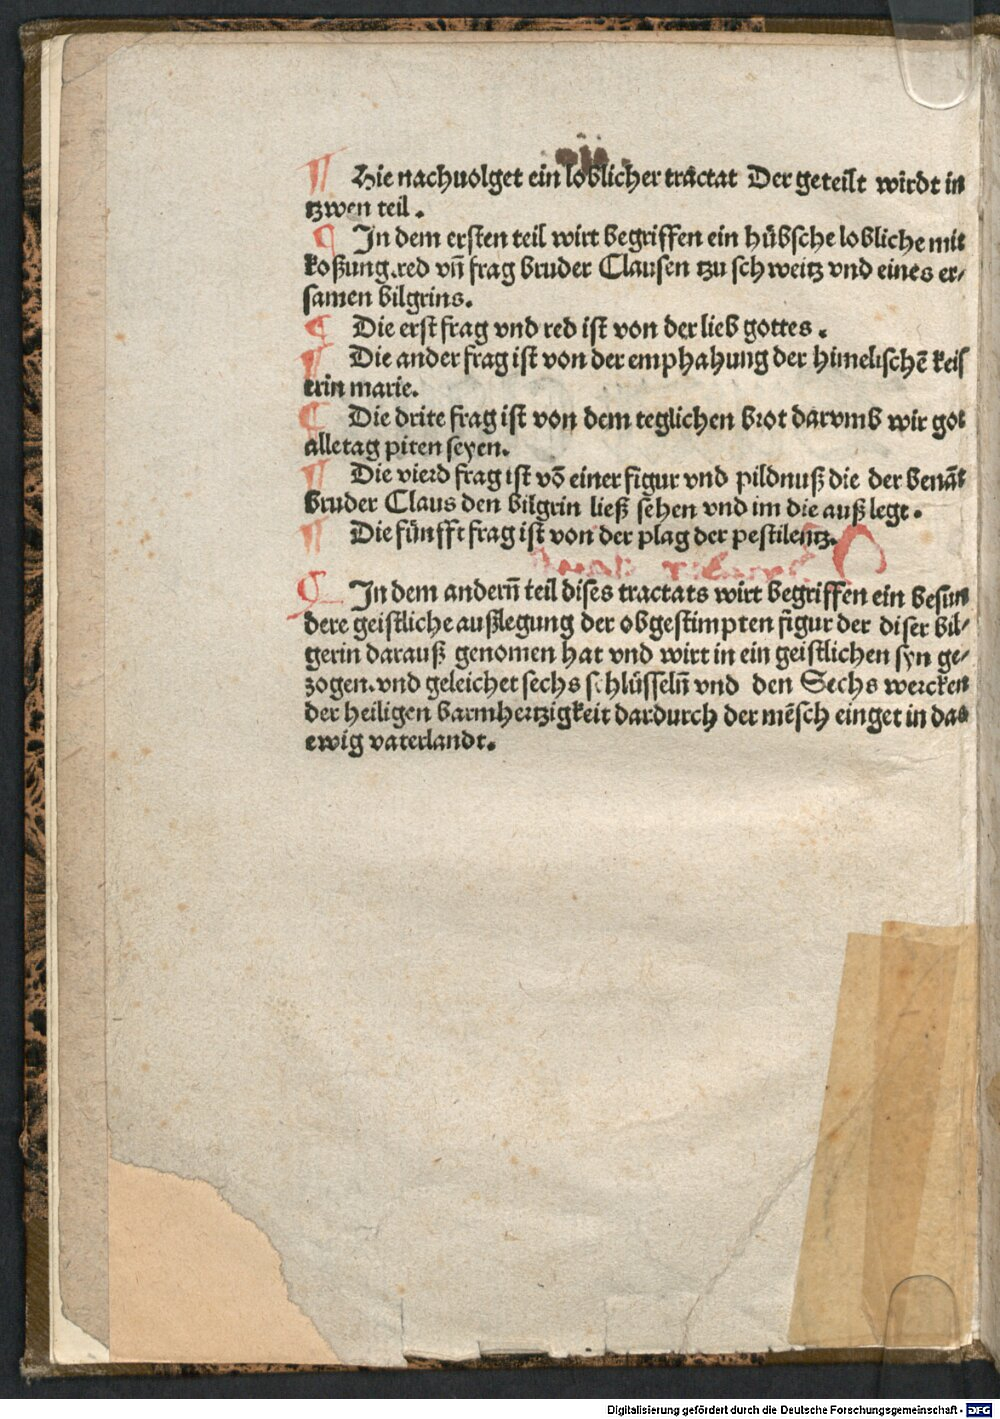 ¶ Hie nachuolget ein loblicher tractat Der geteilt wirdt in
tzwen teil.
¶ In dem ersten teil wirt begriffen ein hübsche lobliche mit
koßung.red vn̄ frag bruder Clausen tzu schweitz vnd eines er⸗
samen bilgrins.
¶ Die erst frag vnd red ist von der lieb gottes.
¶ Die ander frag ist von der emphahung der himelischē keis
erin marie.
¶ Die drite frag ist von dem teglichen brot darvmb wir got
alletag piten seyen.
¶ Die vierd frag ist vō einer figur vnd pildnuß die der benāt
bruder Claus den bilgrin ließ sehen vnd im die auß legt.
¶ Die fünfft frag ist von der plag der pestilentz.
¶ In dem andern̄ teil dises tractats wirt begriffen ein besun
dere geistliche außlegung der obgestimpten figur der diser bil⸗
gerin darauß genomen hat vnd wirt in ein geistlichen syn ge⸗
zogen.vnd geleichet sechs schlüsseln̄ vnd den Sechs wercken
der heiligen barmhertzigkeit dardurch der mēsch einget in das
ewig vaterlandt.
Digitalisierung gefördert durch die Deutsche Forschungsgemeinschaft - DFG